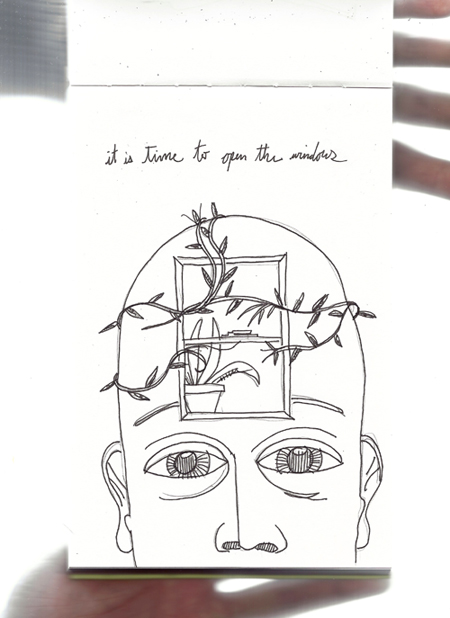 it is time to open the windows